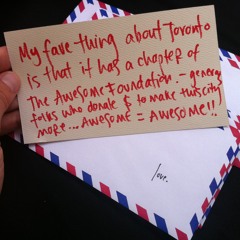 My fave thing about Toronto
is that it has a chapter of
The Awesome Foundation - generous
folks who donate $ to make this city
more... Awesome = Awesome!!
love,